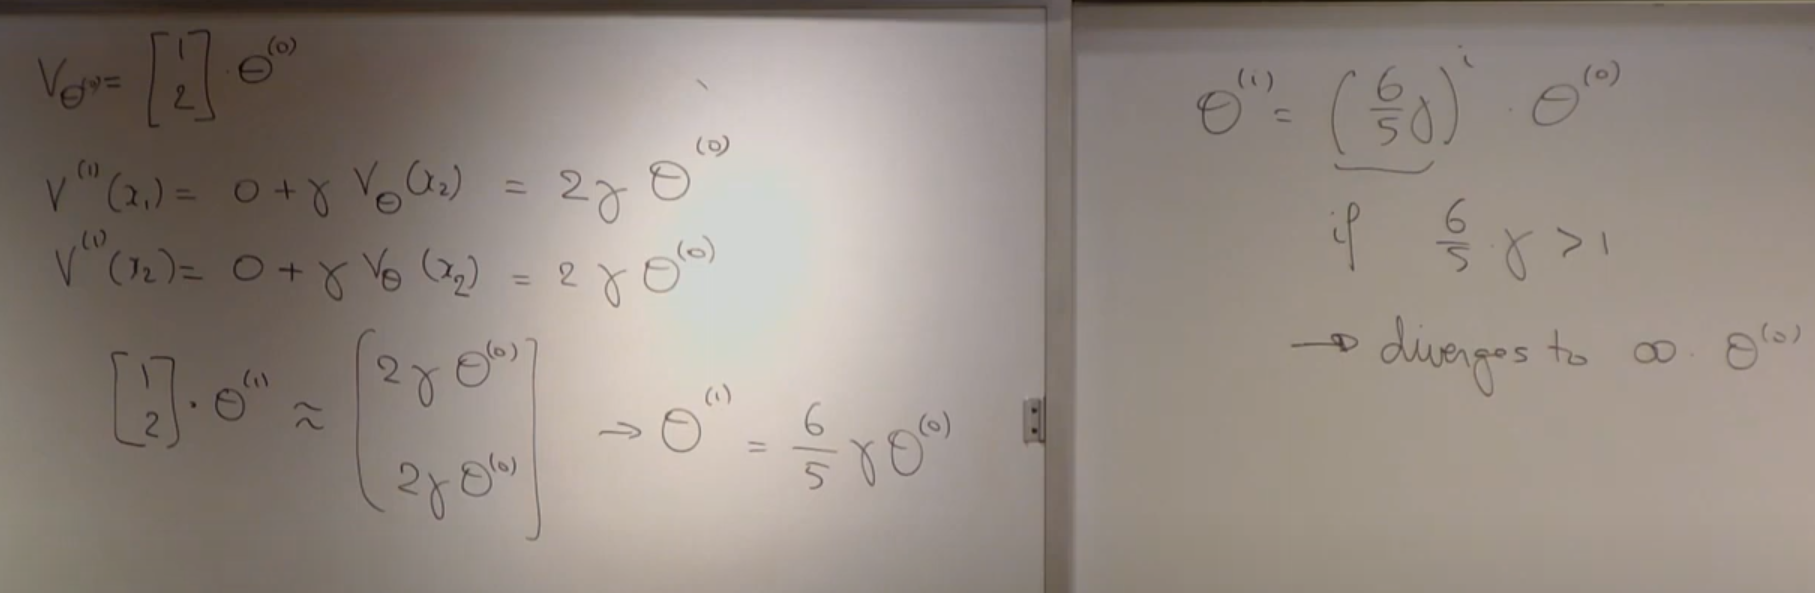 V_θ⁽⁰⁾ = [1 2] · θ⁽⁰⁾
V⁽¹⁾(x₁) = 0 + γ V_θ(x₂) = 2γ θ⁽⁰⁾
V⁽¹⁾(x₂) = 0 + γ V_θ(x₂) = 2γ θ⁽⁰⁾
[1 2] · θ⁽¹⁾ ≈ [2γ θ⁽⁰⁾ 2γ θ⁽⁰⁾] → θ⁽¹⁾ = 6/5 γ θ⁽⁰⁾
θ⁽ⁱ⁾ = (6/5 γ)ⁱ · θ⁽⁰⁾
if 6/5 · γ > 1
→ diverges to ∞ · θ⁽⁰⁾